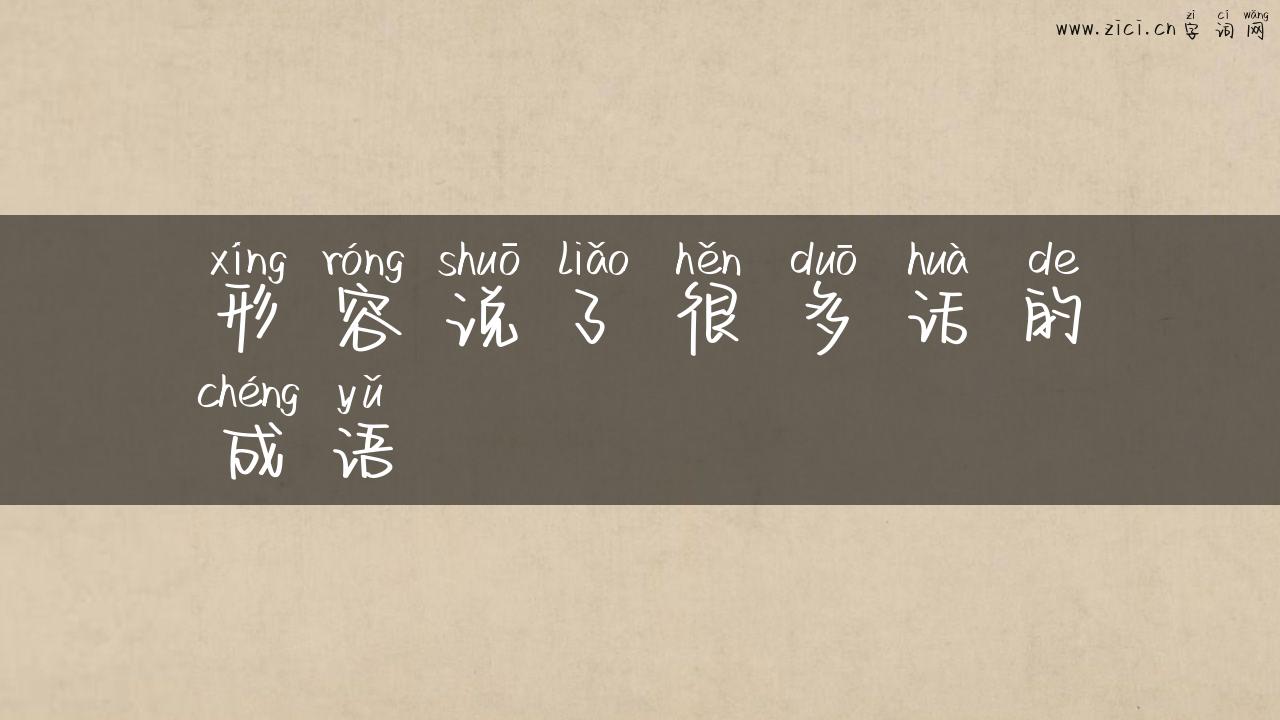 zì cí wǎng
www.zici.cn 字词网
xíng róng shuō liǎo hěn duō huà de
形容说了很多话的
chéng yǔ
成语